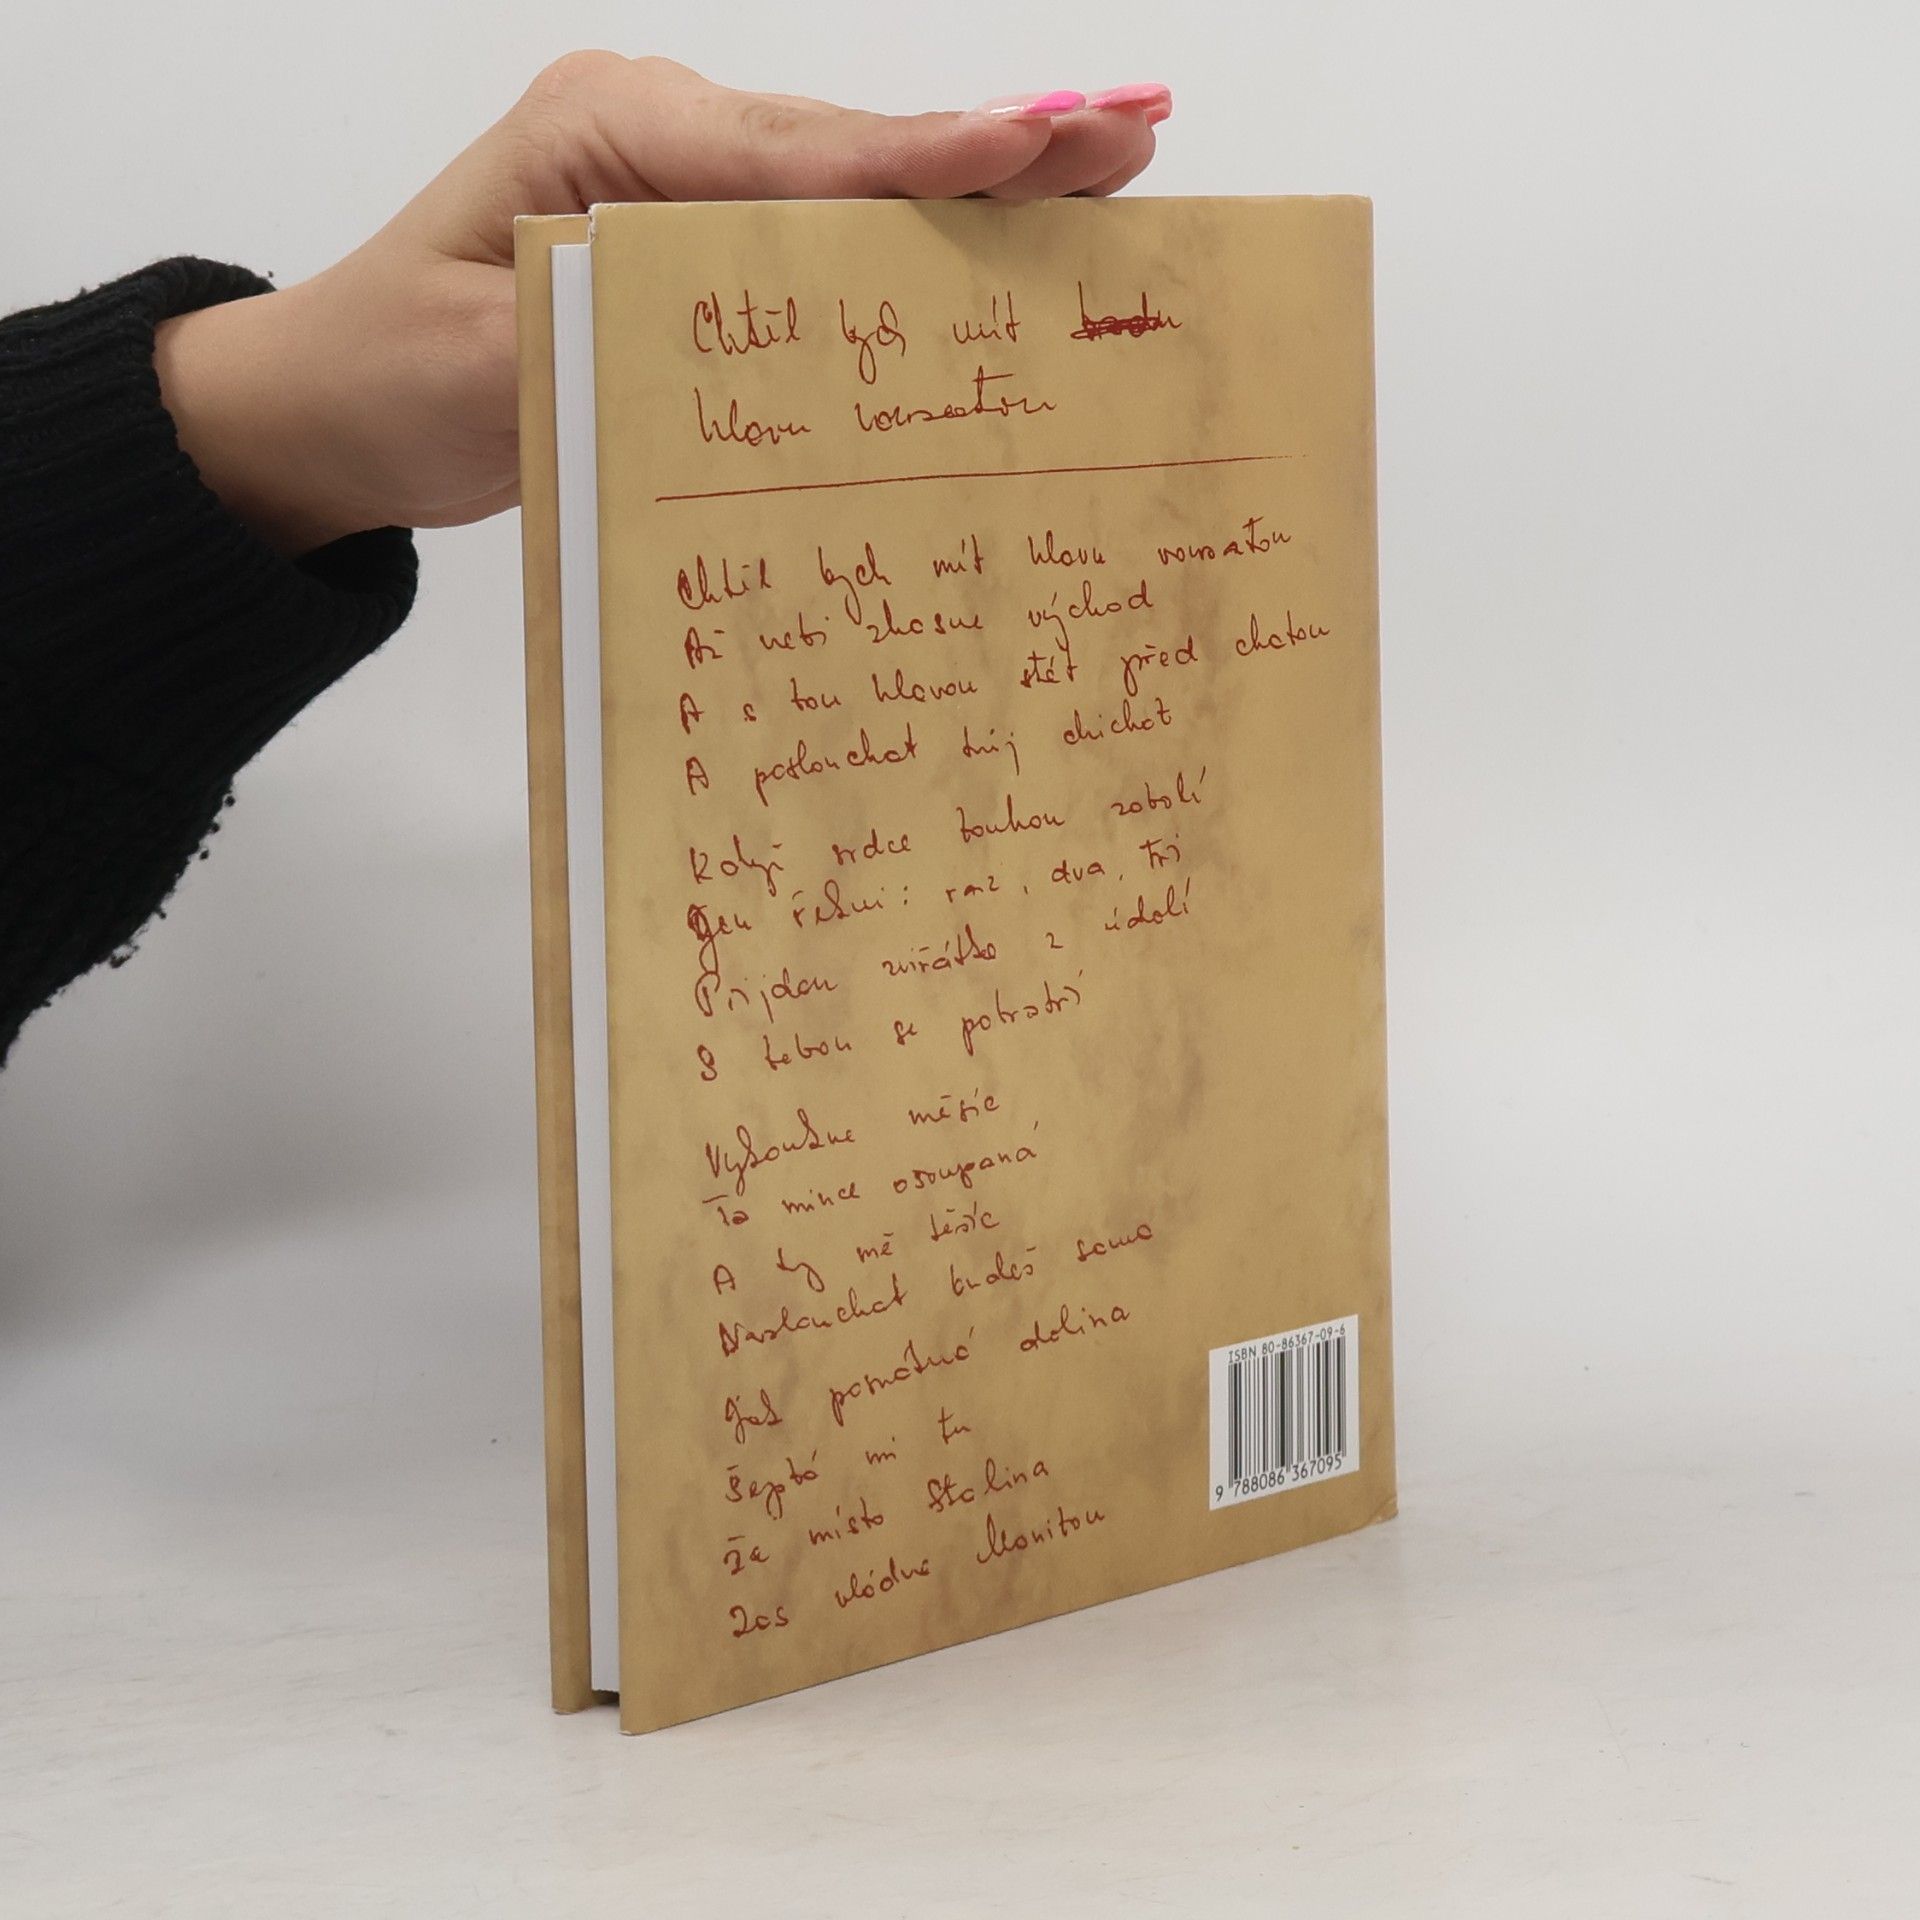 Chtěl bych mít
hlavu vousatou
Chtěl bych mít hlavu vousatou
Až nebi zhasne východ
A s tou hlavou stát před chatou
A poslouchat tvůj chichot
Když srdce touhou zabolí
Jen řekni: raz, dva, tři
Přijdou zvířátka z údolí
S tebou se potratří
Vykoukne měsíc
Ta mince osoupaná
A ty mě těšíc
Naslouchat budeš sama
Jak pomáhá dolina
Šeptá mi tu
Že místo Stalina
Zas vládne Manitou
ISBN 80-86367-09-6
9 788086 367095